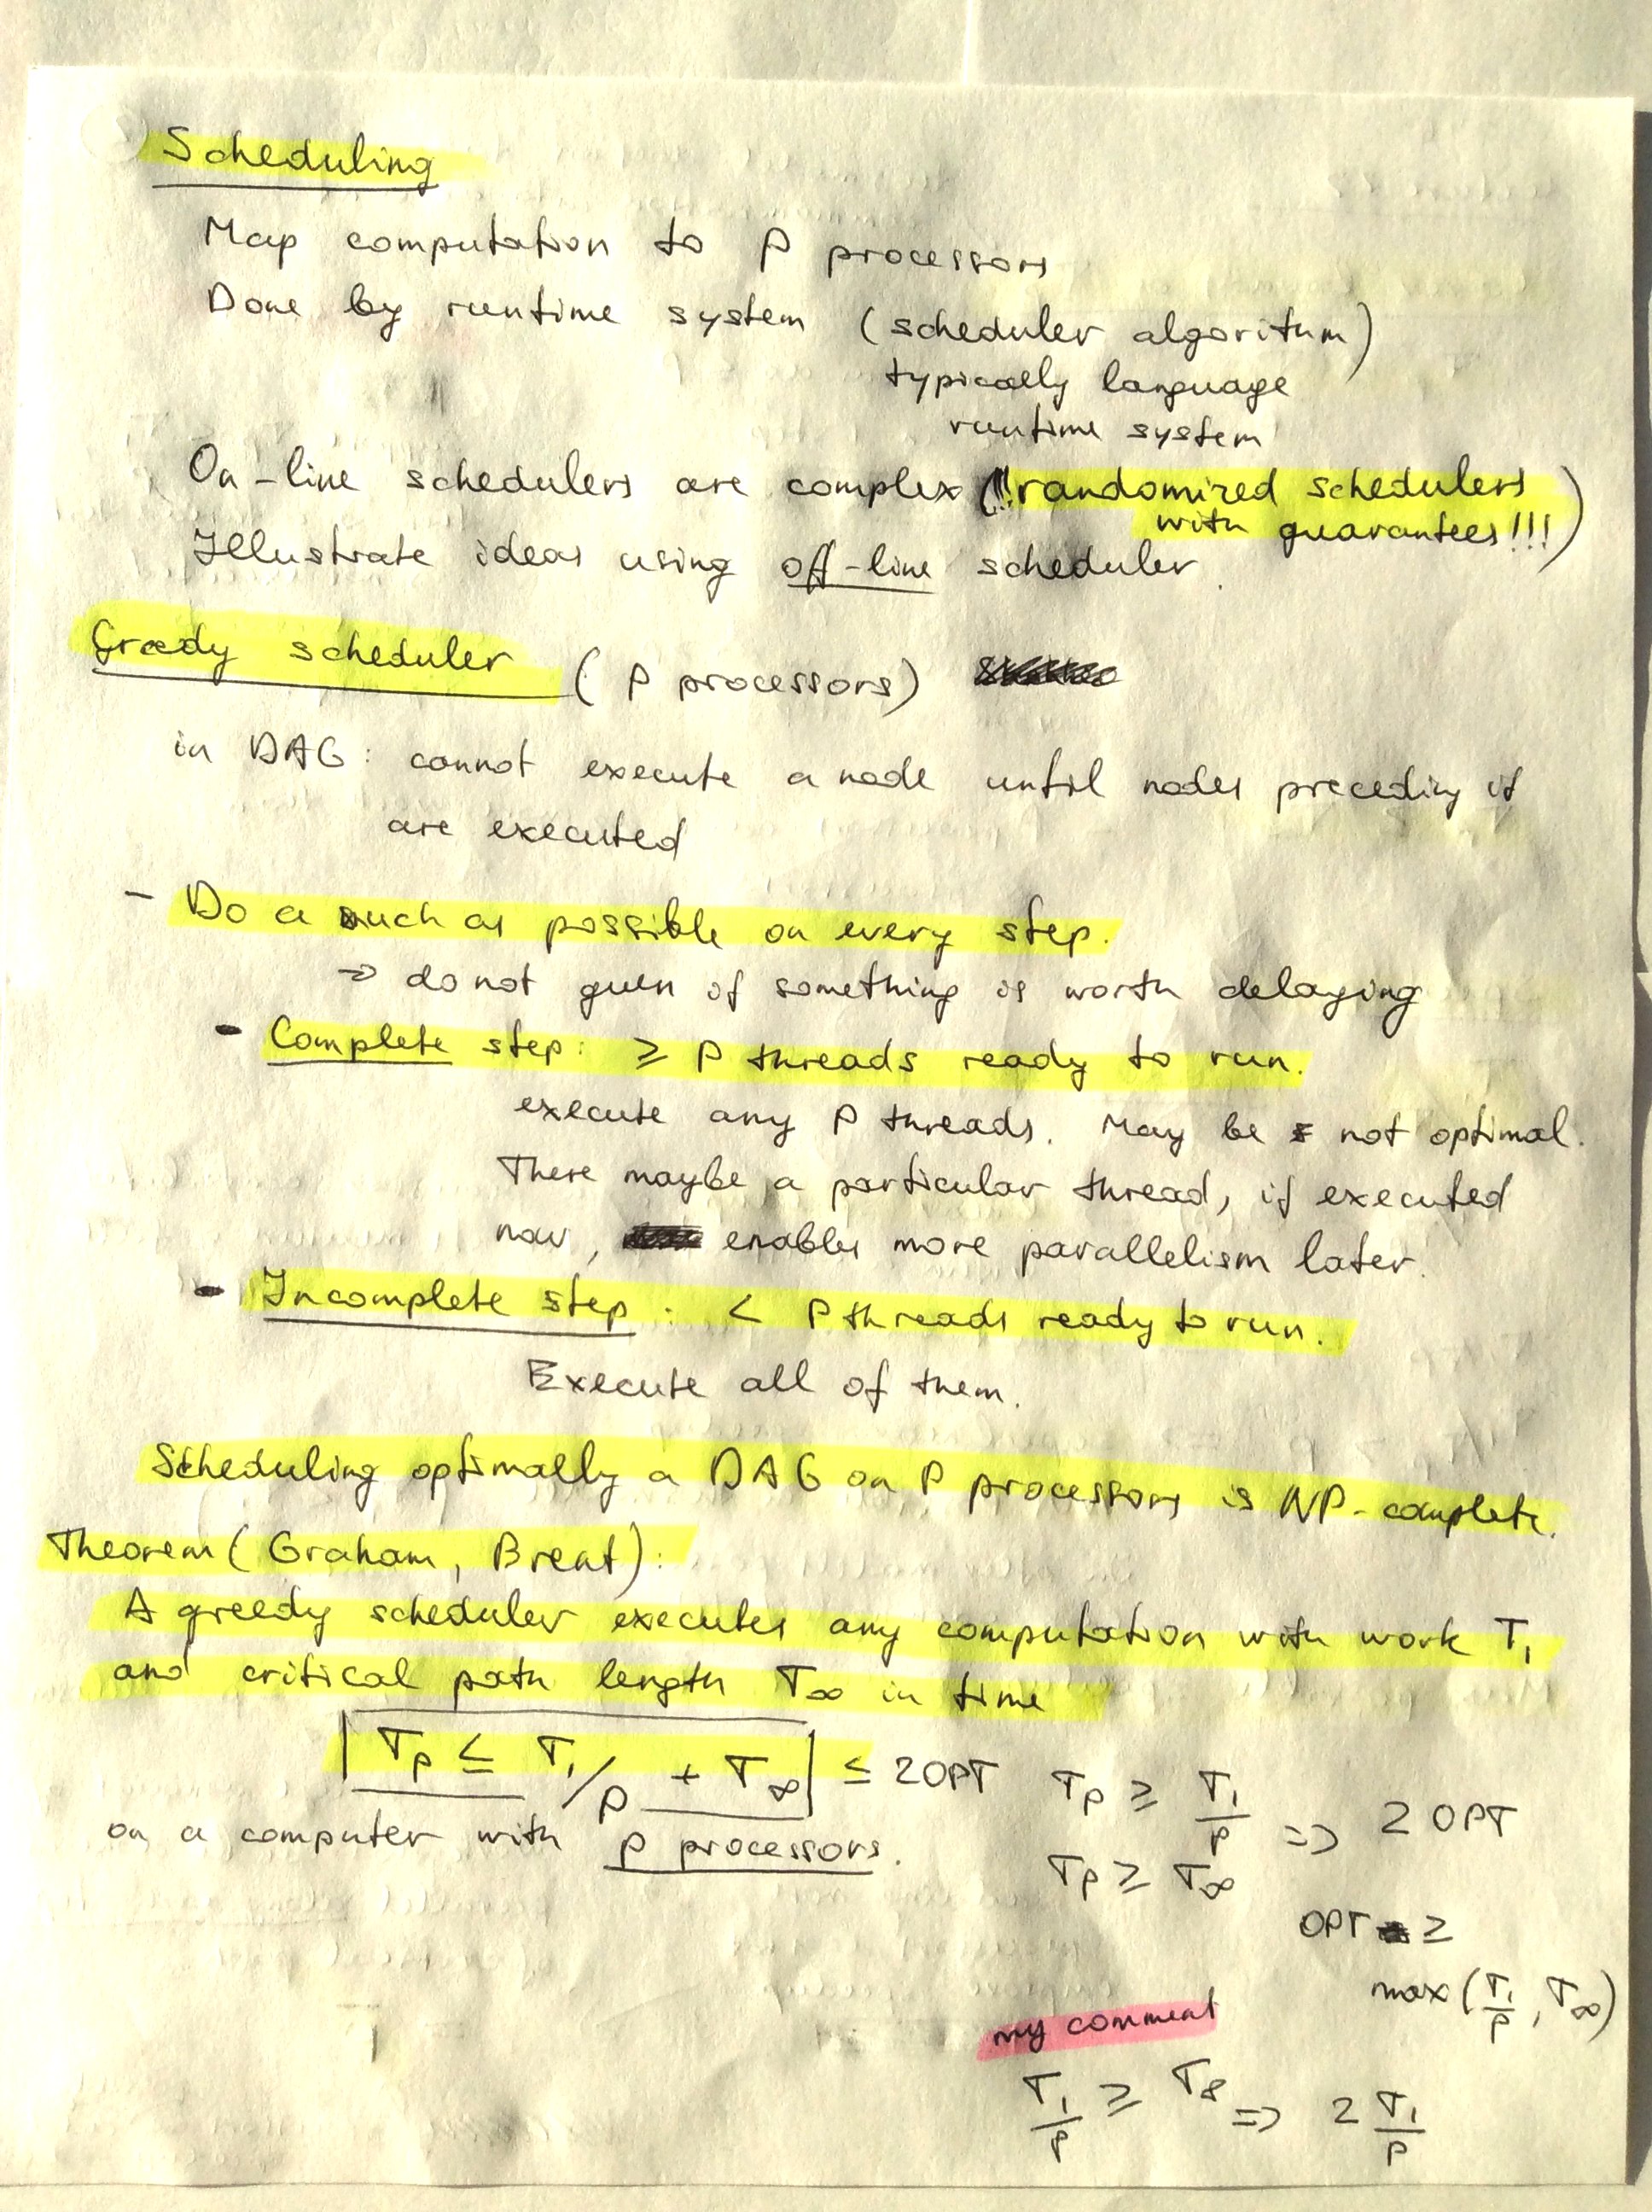 Scheduling
Map computation to P processors
Done by runtime system (scheduler algoritum)
typically language
runtime system
On-line schedulers are complex (!!!randomized schedulers
with guarantees!!!)
Illustrate ideas using off-line scheduler.
Greedy scheduler (P processors)
in DAG: cannot execute a node until nodes preceding it
are executed
- Do a such as possible on every step.
→ do not guess if something is worth delaying
- Complete step: ≥ P threads ready to run.
execute any P threads. May be not optimal.
There maybe a particular thread, if executed
now, enables more parallelism later.
- Incomplete step: < P threads ready to run.
Execute all of them.
Scheduling optimally a DAG on P processors is NP-complete.
Theorem (Graham, Brent):
A greedy scheduler executes any computation with work T₁
and critical path length T∞ in time
Tp ≤ T₁/P + T∞ ≤ 2OPT Tp ≥ T₁/P => 2 OPT
on a computer with P processors. Tp ≥ T∞
OPT ≥
max(T₁/P, T∞)
my comment
T₁/P ≥ T∞ => 2 T₁/P